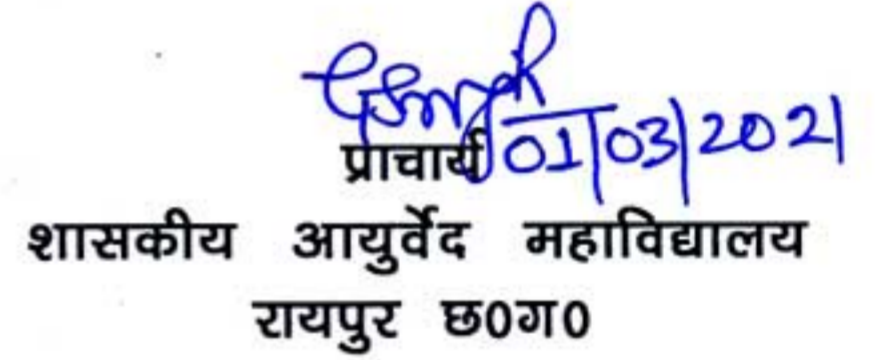 01/03/2021
प्राचार्य
शासकीय आयुर्वेद महाविद्यालय
रायपुर छ0ग0